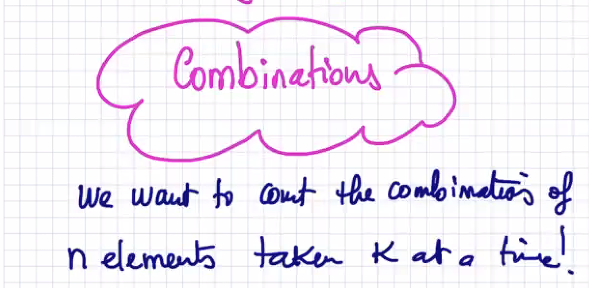 Combinations
We want to count the combinations of
n elements taken K at a time!